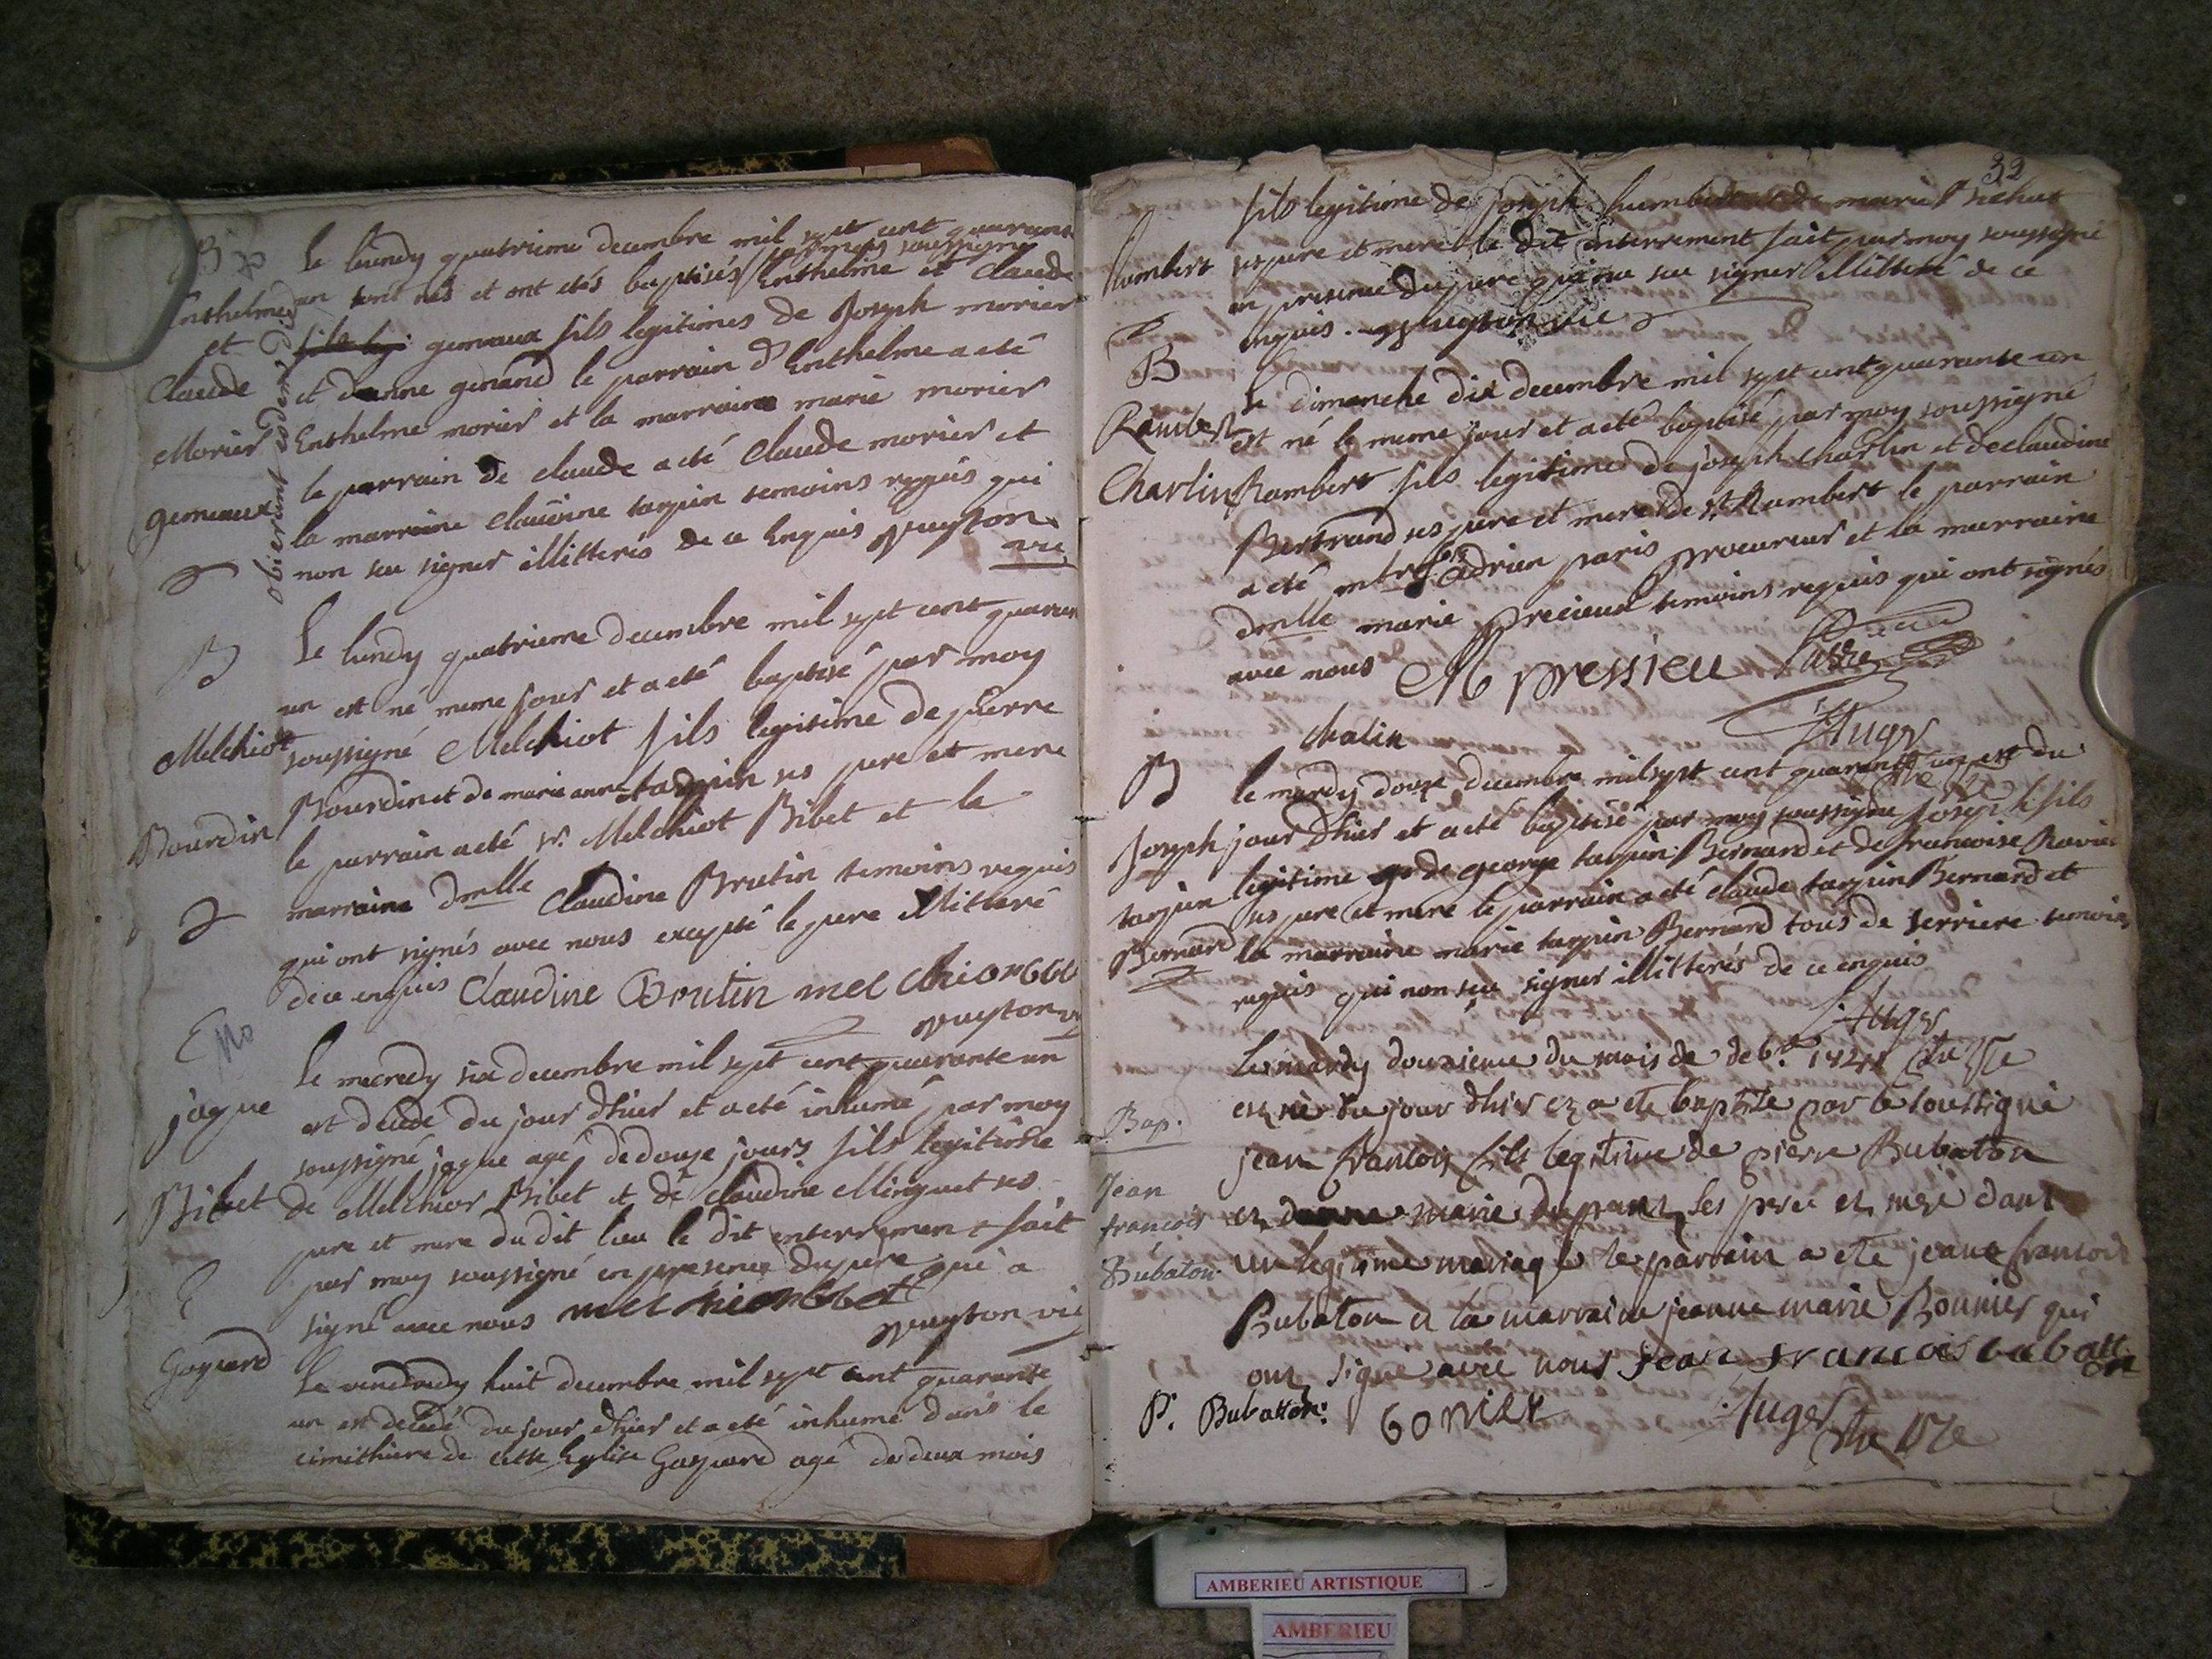 B
Enthelme
et
Claude
Morier
gemeaux
obierunt eodem die
Le lundy quatrieme decembre mil sept cent quarante
un sont nés et ont etés baptisés par moy soussigné Enthelme et Claude
gemeaux fils legitimes de Joseph morier
et danne genand le parrain d'Enthelme a eté
Enthelme morier et la marraine marie morier
le parrain de claude a eté Claude morier et
la marraine Claudine tarpin temoins requis qui
non seu signer illitterés de ce Enquis puyton
vic
B
Melchiot
Bourdin
Le lundy quatrieme decembre mil sept cent quaran
un est né meme jour et a eté baptisé par moy
soussigné Melchiot fils legitime de pierre
Bourdin et de marie anne tarpin ses pere et mere
le parrain a eté sr. Melchiot Bibet et la
marraine dmlle Claudine Brutin temoins requis
qui ont signés avec nous excepté le pere illitteré
de ce enquis Claudine Brutin mel chior
puyton v
E
jaque
Bibet
Le mecredy six decembre mil sept cent quarante un
est decedé du jour dhier et a eté inhumé par moy
soussigné jaque agé de douze jours fils legitime
de Melchior Bibet et de claudine Minguet ses
pere et mere du dit lieu le dit enterrement fait
par moy soussigné en presence du pere qui a
signé avec nous mel chior
puyton vic
E
Gaspard
Le vendredy huit decembre mil sept cent quarante
un est decedé du jour dhier et a eté inhumé dans le
cimithiere de cette Eglise Gaspard agé de deux mois
32
humbert
fils legitime de Joseph humbert et de marie
ses pere et mere le dit enterrement fait par moy soussigné
en presence du pere qui na seu signer illitteré de ce
enquis. puyton vic
B
Rambert
Charlin
Le dimanche dix decembre mil sept cent quarante un
est né le meme jour et a eté baptisé par moy soussigné
Rambert fils legitime de joseph charlin et de claudine
Bertrand ses pere et mere de st Rambert le parrain
a eté adrien paris procureur et la marraine
dmlle marie Precieux temoins requis qui ont signés
avec nous M pressieu
chalin
Auger
B
Joseph
tarpin
Bernard
le mardy douze decembre mil sept cent quarante un est du
jour dhier et a eté baptisé par moy soussigné Joseph fils
legitime de george tarpin Bernard et de francoise Ravier
ses pere et mere le parrain a eté claude tarpin Bernard et
la marraine marie tarpin Bernard tous de serriere temoins
requis qui non seu signer illitterés de ce enquis
Auger
Bap.
Jean
francois
Bubaton
Le mardy douzieme du mois de
est né du jour dhier et a ete baptisé par le soussigné
jean francois fils legitime de pierre Bubaton
et marie dupont ses pere et mere dans
un legitime mariage le parrain a ete jean francois
Bubaton et la marraine jeanne marie Bonnier qui
ont signé avec nous jean francois babatton
P. Bubatton bonier Auger
AMBERIEU ARTISTIQUE
AMBERIEU